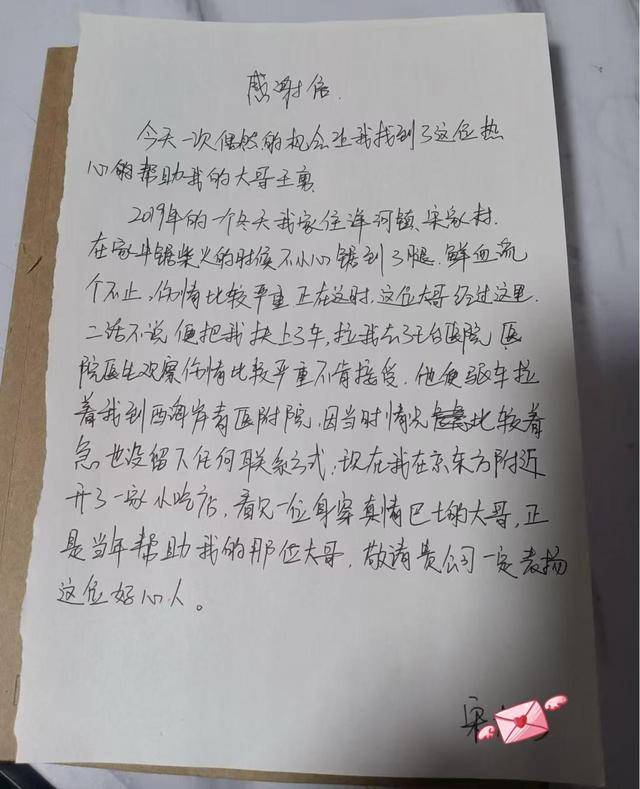 感谢信.
今天一次偶然的机会让我找到了这位热
心的帮助我的大哥王勇.
2019年的一个冬天我家住洋河镇.宋家村.
在家井锯柴火的时候不小心锯到了腿.鲜血流
个不止,伤情比较严重正在这时,这位大哥经过这里.
二话不说便把我扶上了车,拉我去了王台医院,医
院医生观察伤情比较严重不肯接受.他便驱车拉
着我到西海岸青医附院,因当时情况比较着
急也没留下任何联系方式,现在我在京东方附近
开了一家小吃店.看见一位身穿真情巴士的大哥,正
是当年帮助我的那位大哥.敬请贵公司一定表扬
这位好心人。
宋